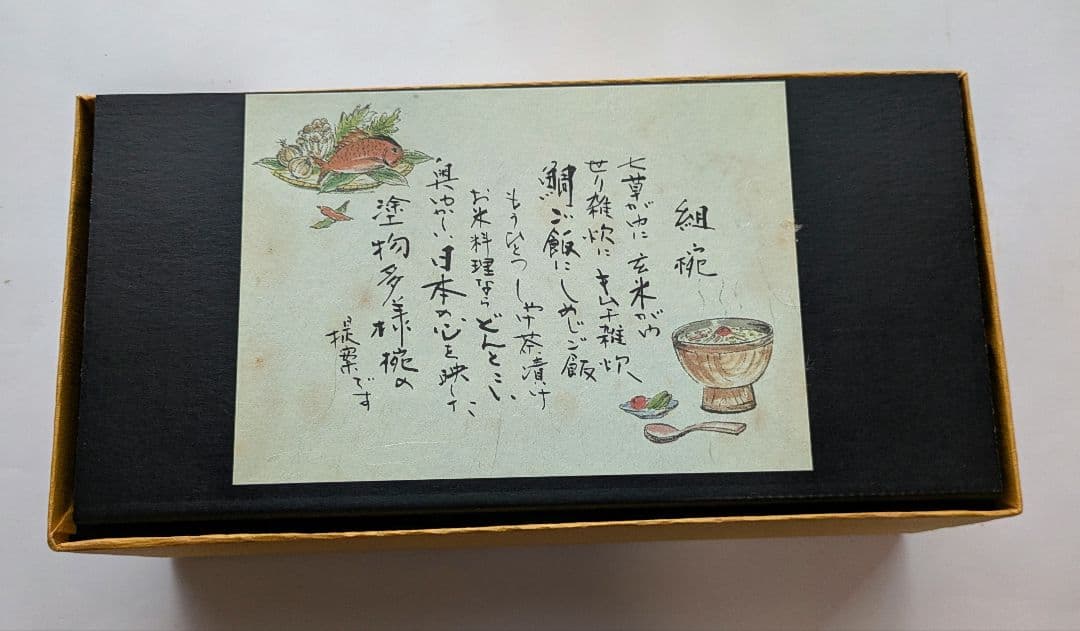 組椀
七草がゆに玄米がゆ
せり雑炊にキムチ雑炊、
鯛ご飯にしめじご飯
もうひとつしゃけ茶漬け
お米料理ならどんとこい、
奥ゆかしい日本の心を映した、
塗物多様椀の
提案です